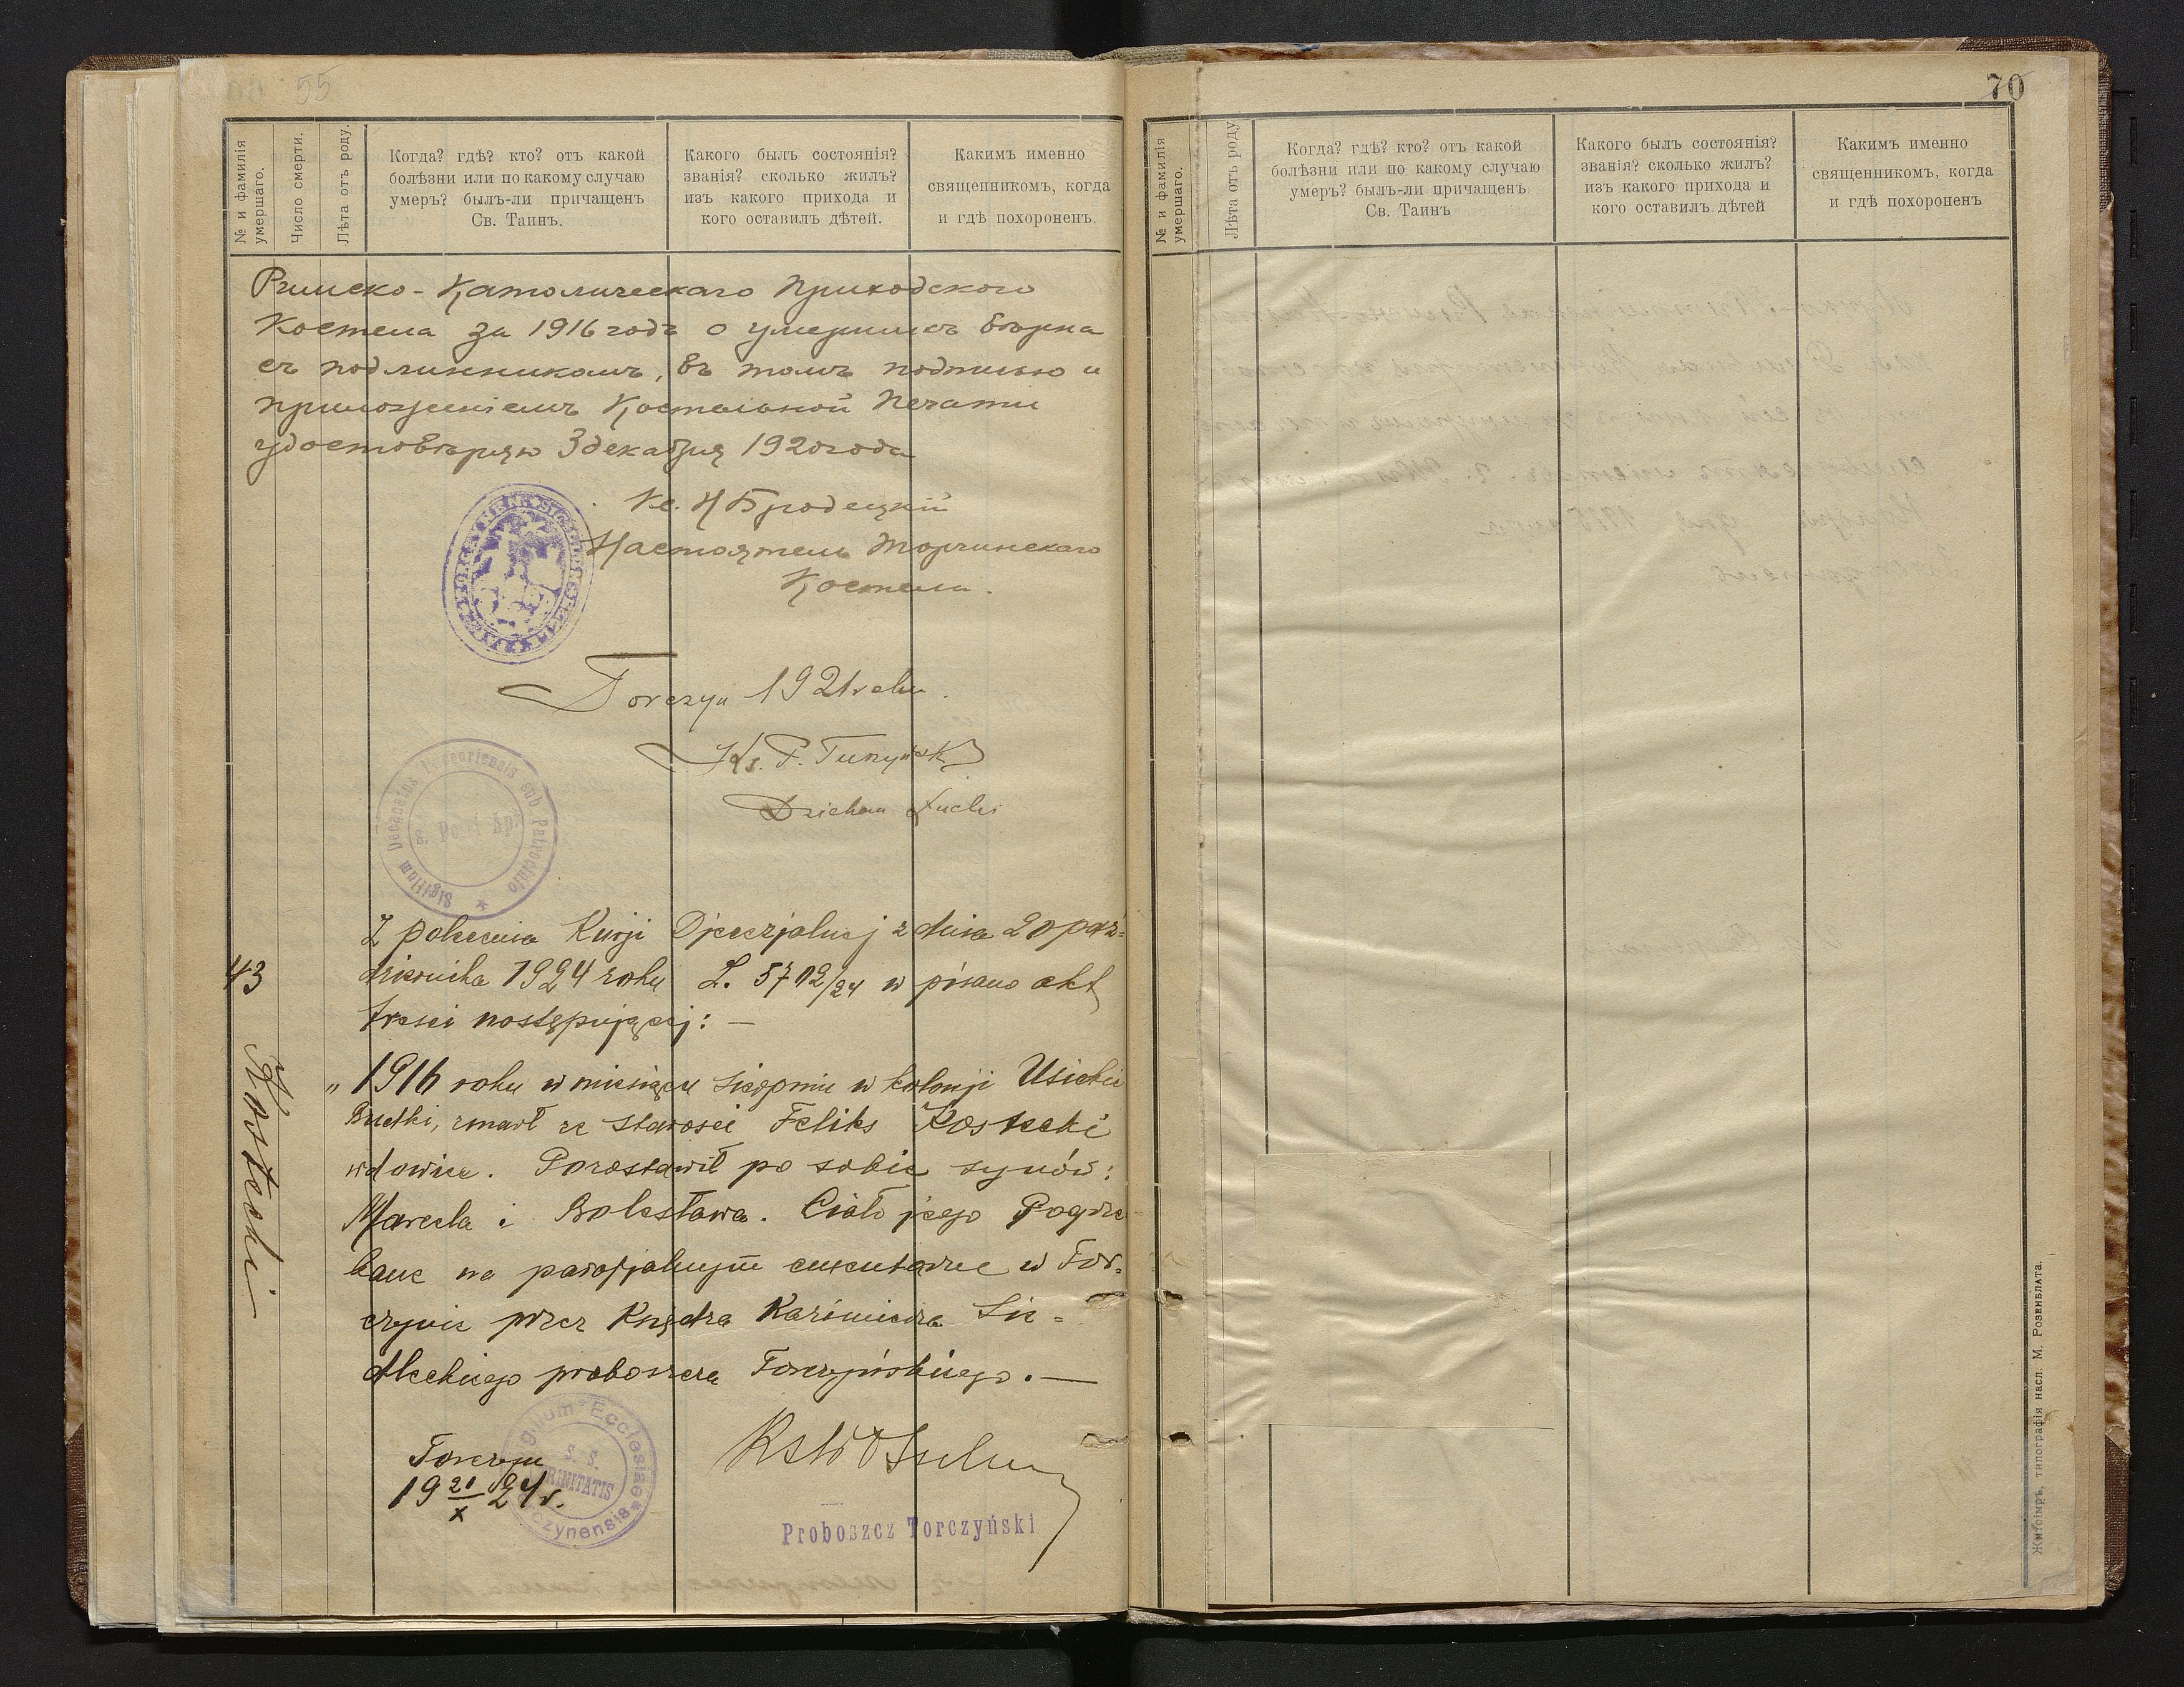 55
№ и фамилія умершаго.
Число смерти.
Лѣта отъ роду.
Когда? гдѣ? кто? отъ какой
болѣзни или по какому случаю
умеръ? былъ-ли причащенъ
Св. Таинъ.
Какого былъ состоянія?
званія? сколько жилъ?
изъ какого прихода и
кого оставилъ дѣтей.
Какимъ именно
священникомъ, когда
и гдѣ похороненъ.
Римско-Католическаго Приходского
Костела за 1916 годъ о умершихъ вѣрна
съ подлинникомъ, въ томъ подписью и
приложеніемъ Костельной Печати
удостовѣряю 3 декабря 1920 года
Кс. Бродецкій
Настоятель Торчинскаго
Костела.
Torczyn 1921 roku.
Ks. P.
Dziekan Łucki
Sigillum Decanatus Luceoriensis sub Patrocinio
S. Petri Ap.
Z polecenia Kurji Djecezjalnej z dnia 20 paź=
dziernika 1924 roku L. 5702/24 wpisano akt
treści następującej: —
43 Kostecki
„1916 roku w miesiącu sierpniu w kolonji Usickie
Budki, zmarł ze starości Feliks Kostecki
wdowiec. Pozostawił po sobie synów:
Marcela i Bolesława. Ciało jego Pogrze
bane na parafjalnym cmentarzu w Tor=
czynie przez Księdza Kazimierza Sie=
dleckiego proboszcza Torczyńskiego. —
Torczyn
19 21/X 24 r.
Sigillum Ecclesiae
S. S.
TRINITATIS
Torczynensis
Proboszcz Torczyński
70
№ и фамилія умершаго.
Лѣта отъ роду
Когда? гдѣ? кто? отъ какой
болѣзни или по какому случаю
умеръ? былъ-ли причащенъ
Св. Таинъ
Какого былъ состоянія?
званія? сколько жилъ?
изъ какого прихода и
кого оставилъ дѣтей
Какимъ именно
священникомъ, когда
и гдѣ похороненъ
Житоміръ, типографія насл. М. Розенблата.